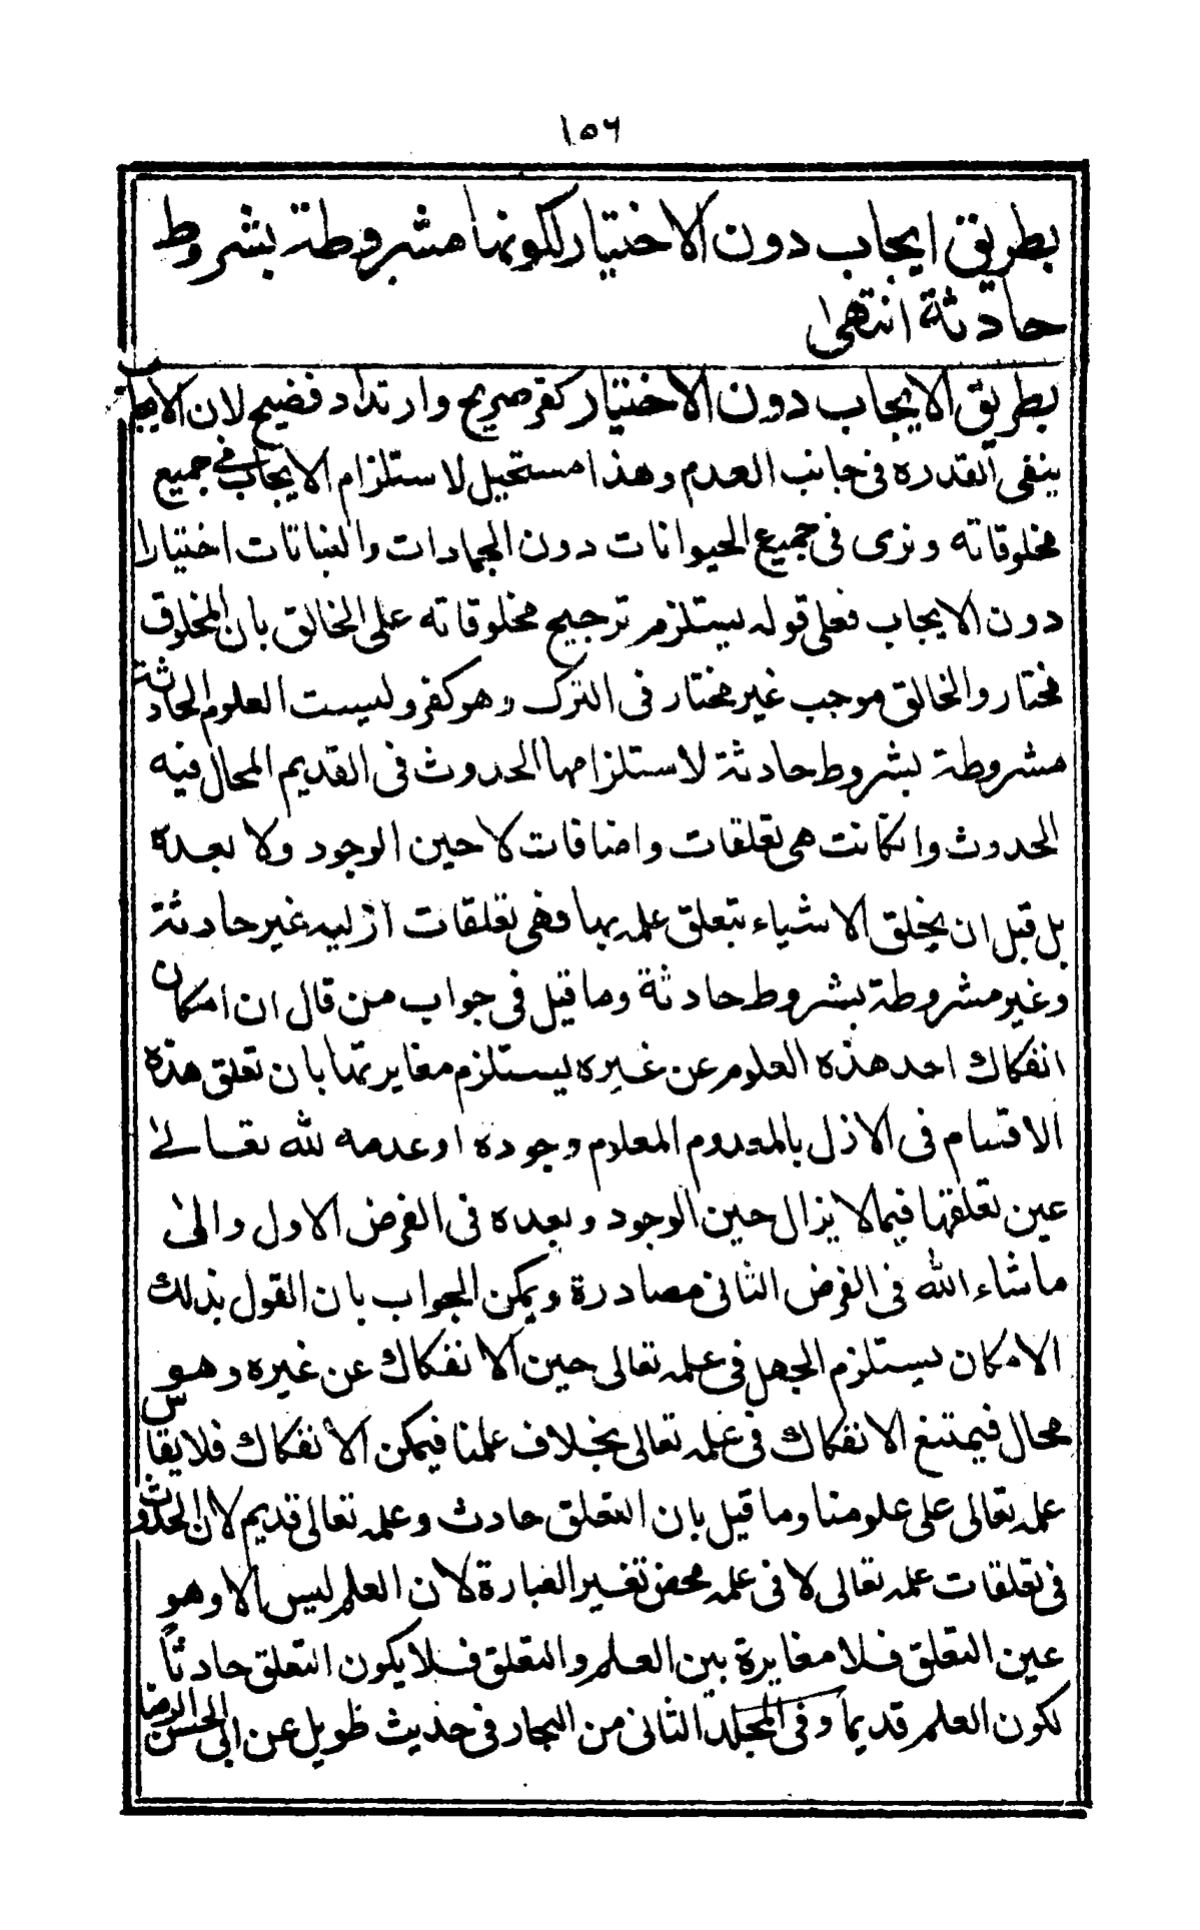 ١٥٦
بطريق ايجاب دون الاختيار لكونها مشروطة بشروط
حادثة انتهى
بطريق الايجاب دون الاختيار كفر صريح وارتداد فضيح لان الايجاب
ينفى القدره فى جانب العدم وهذا مستحيل لاستلزام الايجاب فى جميع
مخلوقاته ونرى فى جميع الحيوانات دون الجمادات والنباتات اختيارا
دون الايجاب فعلى قوله يستلزم ترجيح مخلوقاته على الخالق بان المخلوق
مختار والخالق موجب غير مختار فى الترك وهو كفر وليست العلوم الحادثة
مشروطة بشروط حادثة لاستلزامها الحدوث فى القديم المحال فيه
الحدوث وان كانت هى تعلقات واضافات لا حين الوجود ولا بعده
بل قبل ان يخلق الاشياء بتعلق علمه بها وهى تعلقات ازليه غير حادثة
وغير مشروطة بشروط حادثة وما قيل فى جواب من قال ان امكان
انفكاك احد هذه العلوم عن غيره يستلزم مغايرتها بان تعلق هذه
الاقسام فى الازل بالمعدوم المعلوم وجوده او عدمه لله تعالى
عين تعلقها فيما لا يزال حين الوجود وبعده فى الفرض الاول والى
ماشاء الله فى الفرض الثانى مصادرة ويمكن الجواب بان القول بذلك
الامكان يستلزم الجهل فى علمه تعالى حين الانفكاك عن غيره وهو
محال فيمتنع الانفكاك فى علمه تعالى بخلاف علمنا فيمكن الانفكاك فلا يقاس
علمه تعالى على علومنا وما قيل بان التعلق حادث وعلمه تعالى قديم لان الحدوث
فى تعلقات علمه تعالى لا فى علمه محض تغيير العبارة لان العلم ليس الا وهو
عين التعلق فلا مغايرة بين العلم والتعلق فلا يكون التعلق حادثاً
لكون العلم قديماً وفى المجلد الثانى من البحار فى حديث طويل عن ابى الحسن الرضا